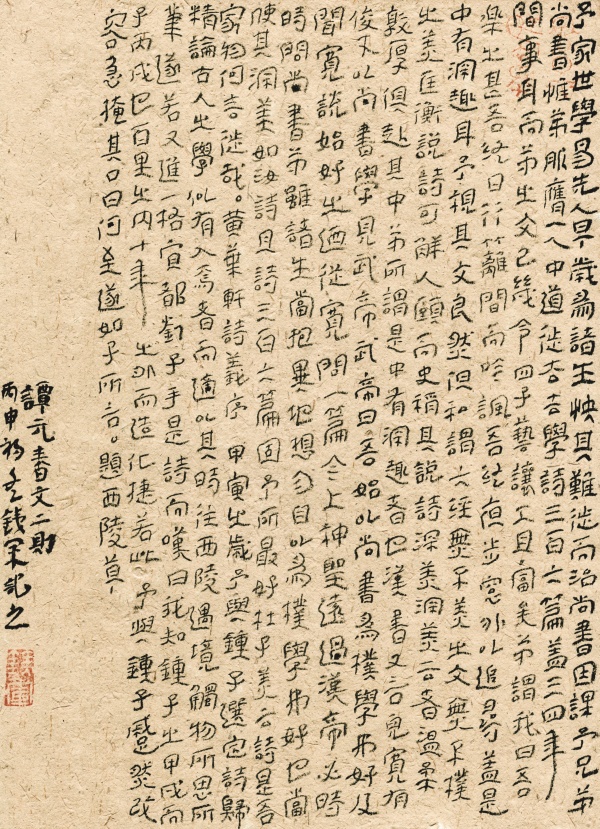 予家世學易先人早歲爲諸生快其難徙而治尚書因課予兄弟
尚書惟弟服膺一人中道徙去學詩三百六篇蓋三四年
間事耳而弟之文已幾令四子藝讓工且富矣弟謂我曰吾
樂之甚吾終日行籬間而吟諷吾終夜步窗外以追尋蓋是
中有洞趣耳予視其文良然但和謂六經無不美之文無不樸
之美匡衡說詩可解人頤而史稱其說詩深美洞美云者溫柔
敦厚俱赴其中弟所謂是中有洞趣者也漢書又言兒寬有
俊才以尚書學見武帝武帝曰吾始以尚書爲樸學弗好及
聞寬說始好之迺從寬問一篇今上神聖遠過漢帝必時
時問尚書弟雖諸生當抱異想勿自以爲樸學弗好也當
使其洞美如汝詩且詩三百六篇固予所最好杜子美云詩是吾
家物何言徙哉。黃葉軒詩義序 甲寅之歲予與鍾子選定詩歸
精論古人之學似有入焉者而適以其時往西陵遇境觸物所思所
筆遂若又進一格宜都劉子手是詩而嘆曰我知鍾子之甲戌而
予丙戌也百里之內十年之外而造化捷若此予與鍾子蹙然改
容急掩其口曰何至遂如子所言。題西陵草
譚元春文二則
丙申初冬錢宋記之